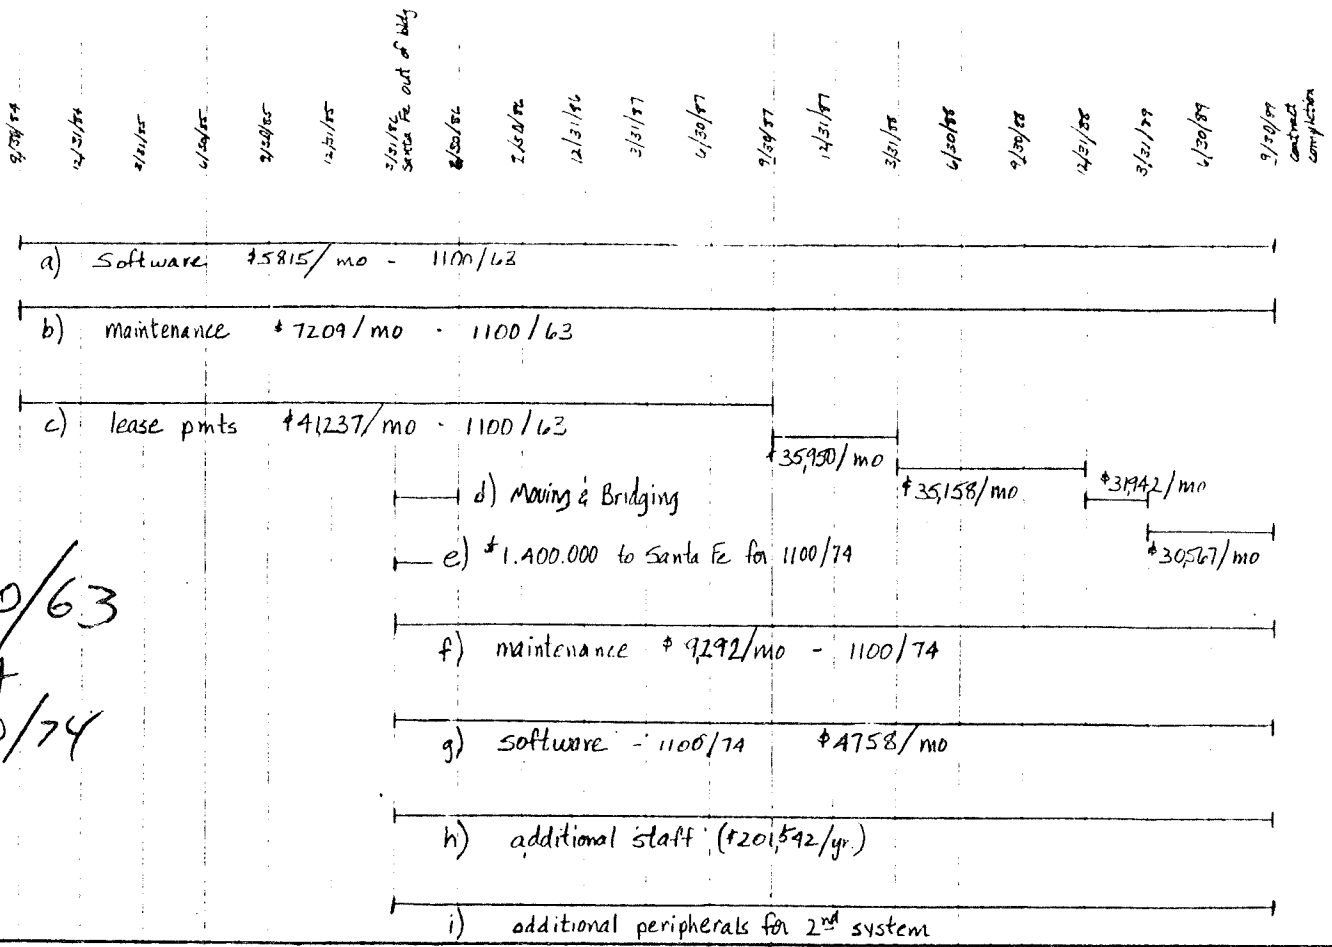 9/30/84
12/31/84
3/31/85
6/30/85
9/30/85
12/31/85
3/31/86
Santa Fe out of bldg
6/30/86
9/30/86
12/31/86
3/31/87
6/30/87
9/30/87
12/31/87
3/31/88
6/30/88
9/30/88
12/31/88
3/31/89
6/30/89
9/30/89
contract
completion
a) Software $5815/mo - 1100/63
b) maintenance $7209/mo - 1100/63
c) lease pmts $41,237/mo - 1100/63
$35,950/mo
$35,158/mo
$31,942/mo
$30,567/mo
d) Moving & Bridging
e) $1.400.000 to Santa Fe for 1100/74
0/63
0/74
f) maintenance $9,292/mo - 1100/74
g) software - 1100/74 $4758/mo
h) additional staff ($201,542/yr.)
i) additional peripherals for 2nd system